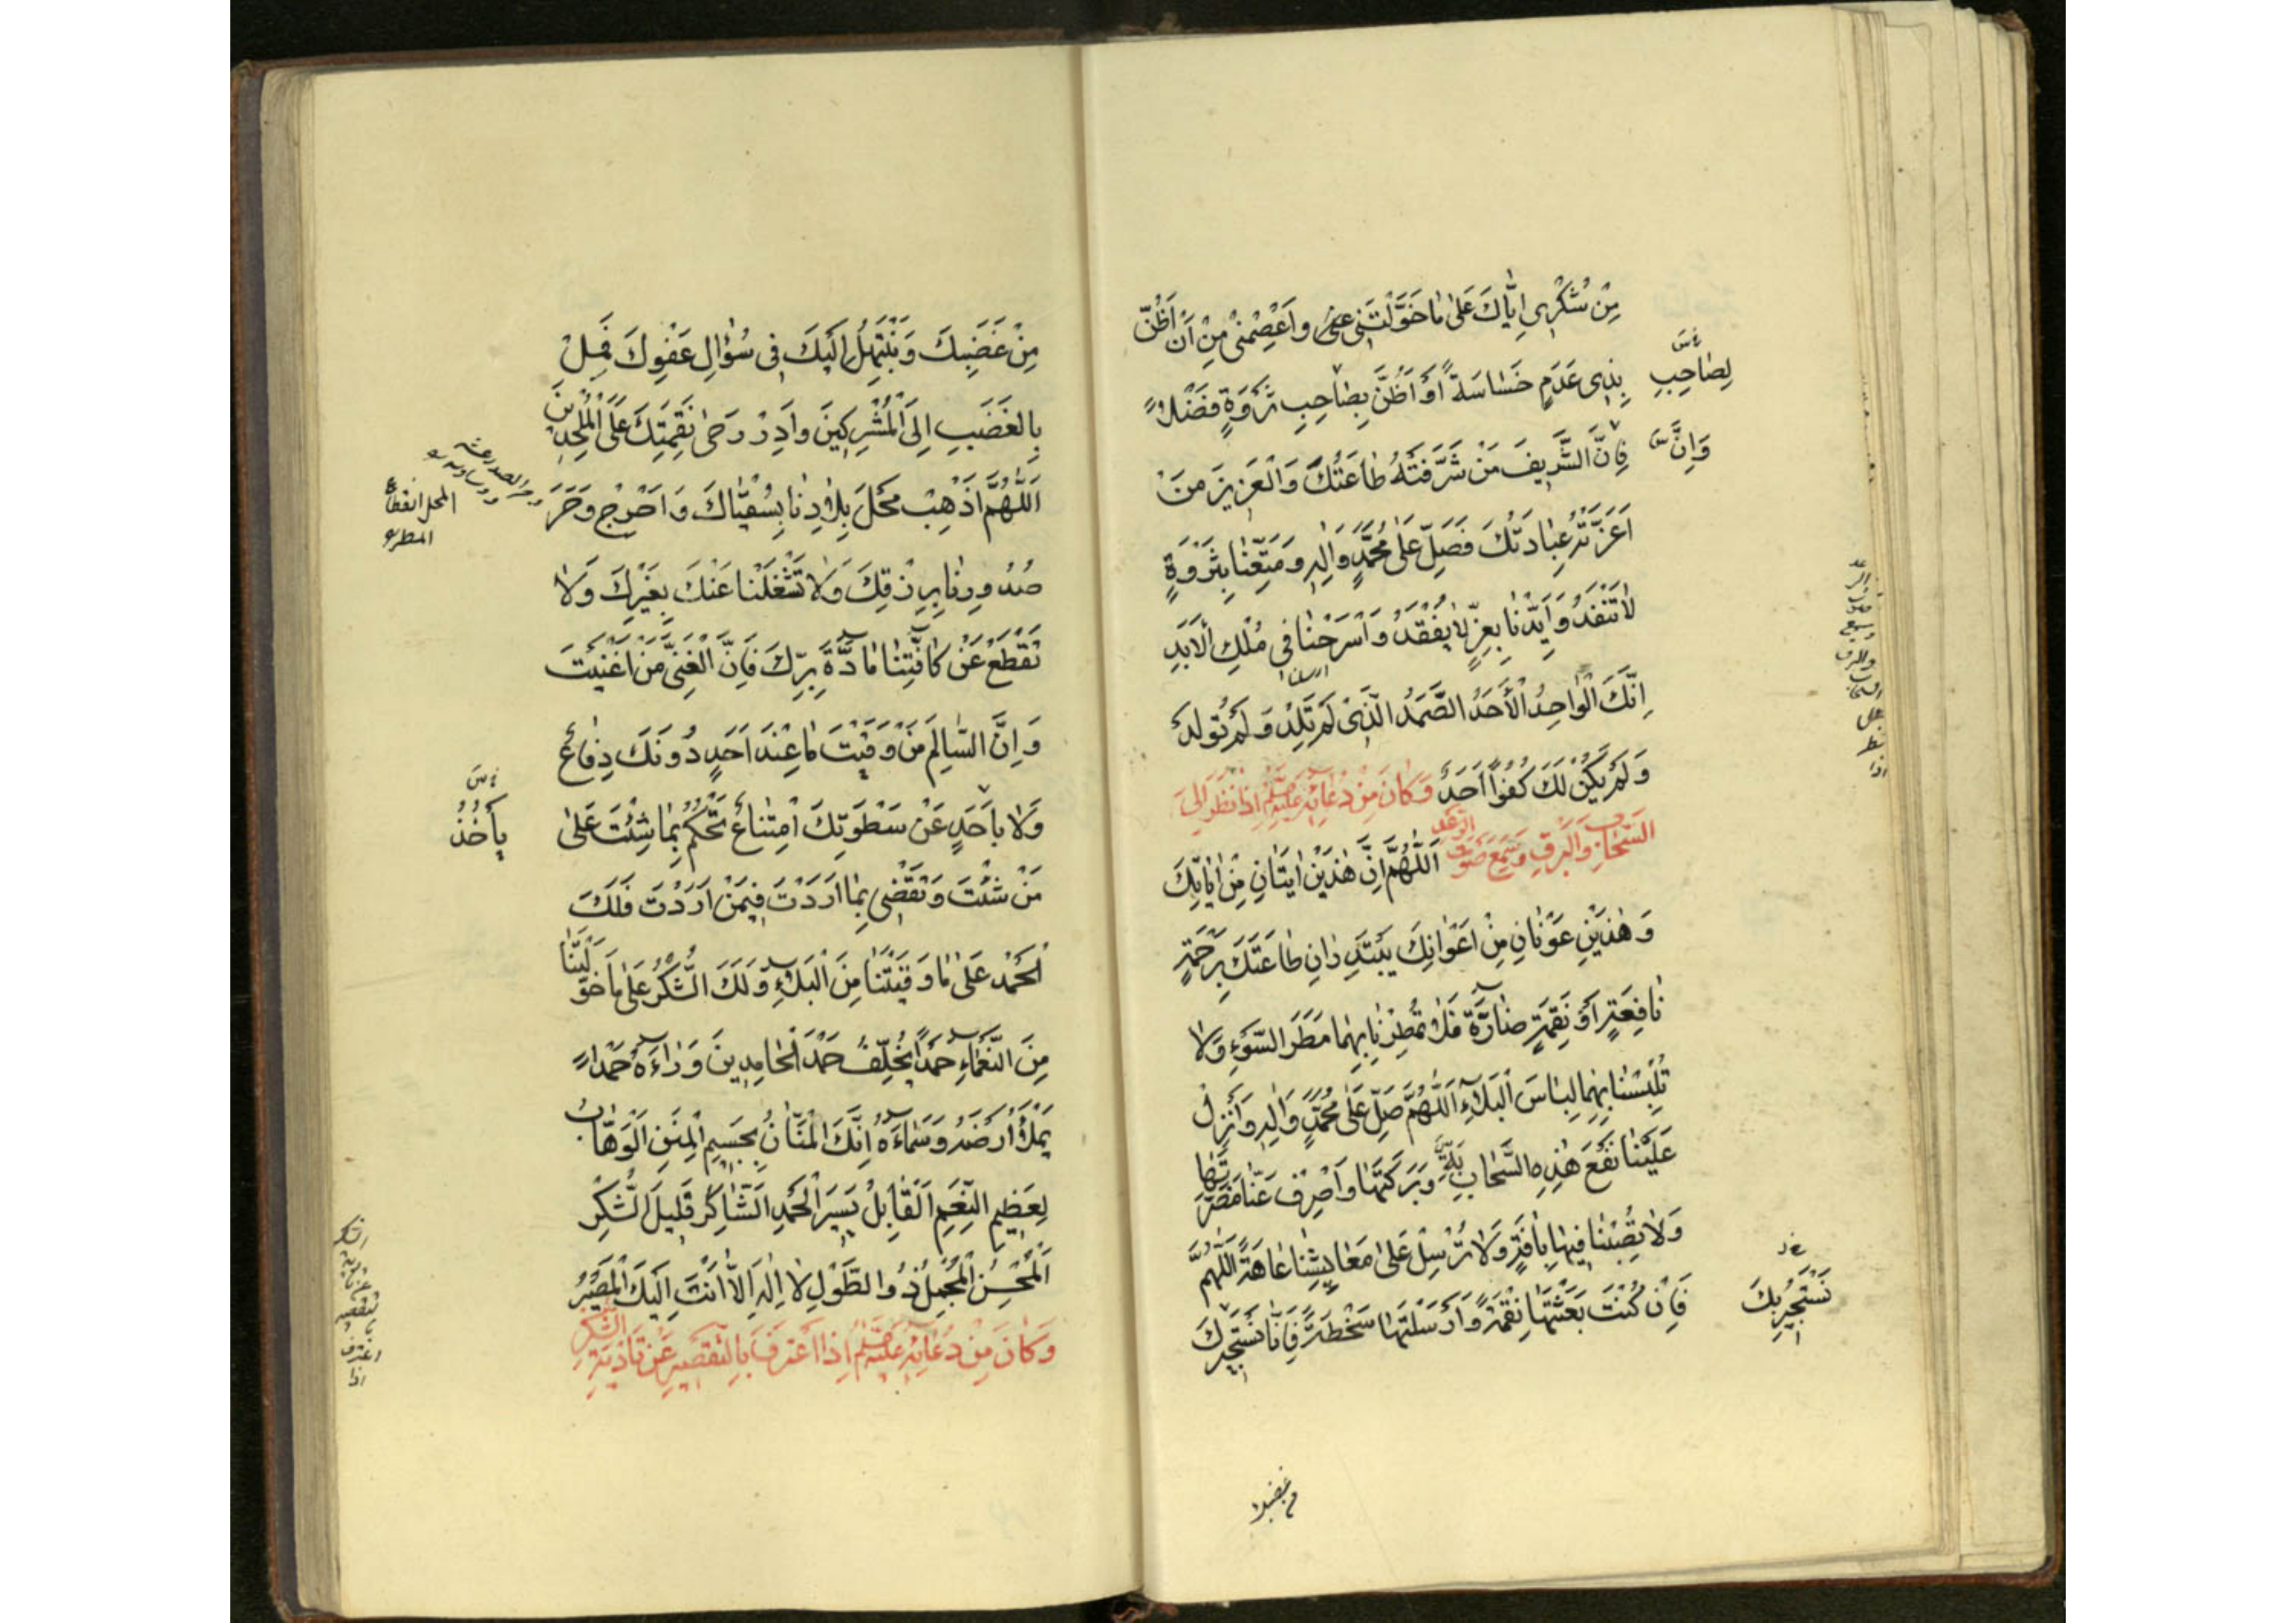 مِنْ شُكْرِي اِيَّاكَ عَلىٰ مٰا خَوَّلْتَنِي وَاعْصِمْنِي مِنْ اَنْ اَظُنَّ
بِذِي عَدَمٍ خَسٰاسَةً اَوْ اَظُنَّ بِصٰاحِبِ ثَرْوَةٍ فَضْلاً
لِصٰاحِبِ
فَاِنَّ الشَّرِيفَ مَنْ شَرَّفَتْهُ طٰاعَتُكَ وَالْعَزِيزَ مَنْ
وَاِنَّ
اَعَزَّتْهُ عِبٰادَتُكَ فَصَلِّ عَلىٰ مُحَمَّدٍ وَاٰلِهِ وَمَتِّعْنٰا بِثَرْوَةٍ
لاٰ تَنْفَدُ وَاَيِّدْنٰا بِعِزٍّ لاٰ يُفْقَدُ وَاسْرَحْنٰا فِي مُلْكِ الْاَبَدِ
اِنَّكَ الْوٰاحِدُ الْأَحَدُ الصَّمَدُ الَّذِي لَمْ تَلِدْ وَلَمْ تُولَدْ
وَلَمْ يَكُنْ لَكَ كُفُوًا اَحَدٌ وَكٰانَ مِنْ دُعٰائِهِ عَلَيْهِ اِذٰا نَظَرَ اِلَى
السَّحٰابِ وَالْبَرْقِ وَسَمِعَ صَوْتَ الرَّعْدِ اَللّٰهُمَّ اِنَّ هٰذَيْنِ اٰيَتٰانِ مِنْ اٰيٰاتِكَ
وَهٰذَيْنِ عَوْنٰانِ مِنْ اَعْوٰانِكَ يَبْتَدِرٰانِ طٰاعَتَكَ بِرَحْمَةٍ
نٰافِعَةٍ اَوْ نَقِمَةٍ ضٰارَّةٍ فَلاٰ تُمْطِرْنٰا بِهِمٰا مَطَرَ السَّوْءِ وَلاٰ
تُلْبِسْنٰا بِهِمٰا لِبٰاسَ الْبَلاٰءِ اَللّٰهُمَّ صَلِّ عَلىٰ مُحَمَّدٍ وَاٰلِهِ وَاَنْزِلْ
عَلَيْنٰا نَفْعَ هٰذِهِ السَّحٰابِ وَبَرَكَتَهٰا وَاصْرِفْ عَنّٰا مَضَرَّتَهٰا
وَلاٰ تُصِبْنٰا فِيهٰا بِاٰفَةٍ وَلاٰ تُرْسِلْ عَلىٰ مَعٰايِشِنٰا عٰاهَةً اَللّٰهُمَّ
فَاِنْ كُنْتَ بَعَثْتَهٰا نِقْمَةً وَاَرْسَلْتَهٰا سَخْطَةً فَاِنّٰا نَسْتَجِيرُكَ
نَسْتَجِيرُ بِكَ
من غضبك
مِنْ غَضَبِكَ وَنَبْتَهِلُ اِلَيْكَ فِي سُؤٰالِ عَفْوِكَ فَمِلْ
بِالْغَضَبِ اِلَى الْمُشْرِكِينَ وَاَدِرْ رَحىٰ نَقِمَتِكَ عَلَى الْمُلْحِدِينَ
اَللّٰهُمَّ اَذْهِبْ مَحْلَ بِلاٰدِنٰا بِسُقْيٰاكَ وَاَخْرِجْ وَحَرَ
المحل انقطاع
المطر
صُدُورِنٰا بِرِزْقِكَ وَلاٰ تَشْغَلْنٰا عَنْكَ بِغَيْرِكَ وَلاٰ
تَقْطَعْ عَنْ كٰافَّتِنٰا مٰادَّةَ بِرِّكَ فَاِنَّ الْغَنِيَّ مَنْ اَغْنَيْتَ
وَاِنَّ السّٰالِمَ مَنْ وَقَيْتَ مٰا عِنْدَ اَحَدٍ دُونَكَ دِفٰاعٌ
وَلاٰ بِاَحَدٍ عَنْ سَطْوَتِكَ امْتِنٰاعٌ تَحْكُمُ بِمٰا شِئْتَ عَلىٰ
يأخُذُ
مَنْ شِئْتَ وَتَقْضِي بِمٰا اَرَدْتَ فِيمَنْ اَرَدْتَ فَلَكَ
الْحَمْدُ عَلىٰ مٰا وَقَيْتَنٰا مِنَ الْبَلاٰءِ وَلَكَ الشُّكْرُ عَلىٰ مٰا خَوَّلْتَنٰا
مِنَ النَّعْمٰاءِ حَمْدًا يُخَلِّفُ حَمْدَ الْحٰامِدِينَ وَرٰاءَهُ حَمْدًا
يَمْلَأُ اَرْضَهُ وَسَمٰاءَهُ اِنَّكَ الْمَنّٰانُ بِجَسِيمِ الْمِنَنِ الْوَهّٰابُ
لِعَظِيمِ النِّعَمِ الْقٰابِلُ يَسِيرَ الْحَمْدِ الشّٰاكِرُ قَلِيلَ الشُّكْرِ
الْمُحْسِنُ الْمُجْمِلُ ذُو الطَّوْلِ لاٰ اِلٰهَ اِلاّٰ اَنْتَ اِلَيْكَ الْمَصِيرُ
وَكٰانَ مِنْ دُعٰائِهِ عَلَيْهِ اِذَا اعْتَرَفَ بِالتَّقْصِيرِ عَنْ تَأْدِيَةِ الشُّكْرِ